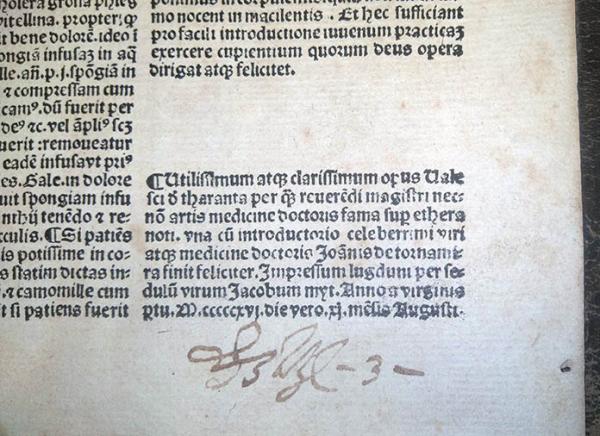 holera grossa phleg
vitellina. propter: qđ
it bene dolorē. ideo i
ongiā infusaʒ in aq̄
lle. añ. p. j. spōgiā in
⁊ compressam cum
camꝰ. dū fuerit per
deꝰ ⁊c. vel āpliꝰ scʒ
uerit: remoueatur
eadē infusavt priꝰ
es. Gale. in dolore
uit spongiam infu
nthij tenēdo ⁊ re-
cculis. ¶ Si patiēs
is potissime in co-
s statim dictas in-
. ⁊ camomille cum
t si patiens fuerit
mo nocent in macilentis. Et hec sufficiant
pro facili introductione iuuenum practicaʒ
exercere cupientium quorum deus opera
dirigat atqʒ felicitet.
¶ Utilissimum atqʒ clarissimum opus Uale
sci đ tharanta per q̄ʒ reuerēdi magistri nec-
nō artis medicine doctoris fama sup ethera
noti. vna cū introductorio celeberrimi viri
atqʒ medicine doctoris Joānis de tornami
ra finit feliciter. Impressum lugduni per se-
dulū virum Jacobum myt. Anno a virginis
ptu. M.cccccxvj. die vero. xj. mēsis Augusti.
- 3 -